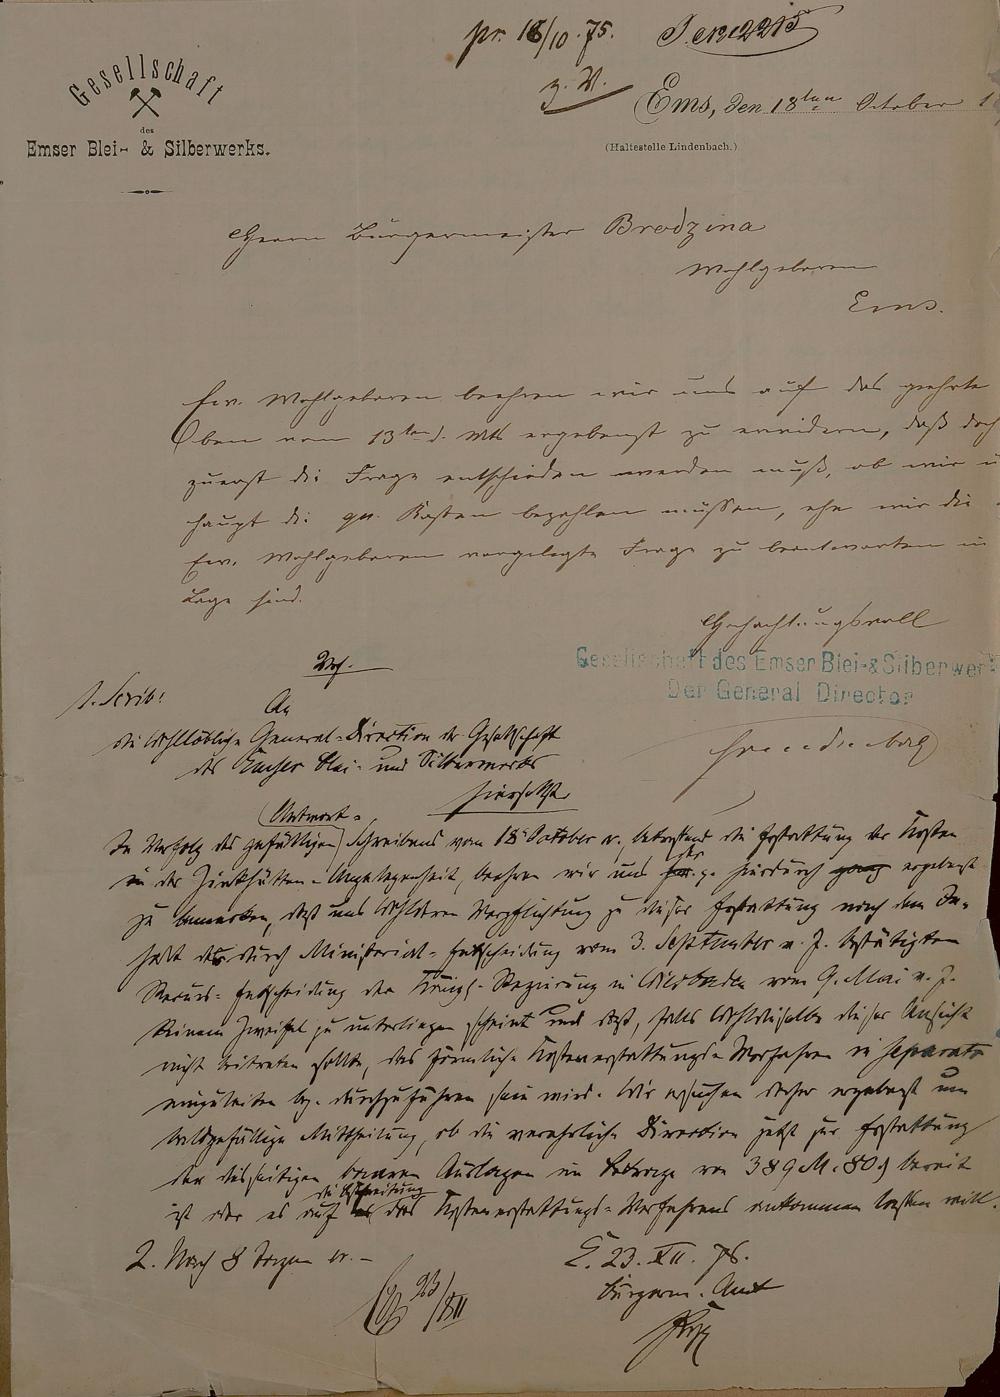 pr. 18/10. 75.
z. V.
Gesellschaft
des
Emser Blei- & Silberwerks.
Ems, den 18ten October 1
(Haltestelle Lindenbach.)
Herrn Bürgermeister Brodzina
Wohlgeboren
Ems.
Ew. Wohlgeboren beehren wir uns auf das geehrte
vom 13ten d. Mts ergebenst zu erwidern, daß doch
zuerst die Frage entschieden werden muß, ob wir ü
haupt die qu. Kosten bezahlen müssen, ehe wir die
Ew. Wohlgeboren vorgelegte Frage zu beantworten in
Lage sind.
Hochachtungsvoll
Gesellschaft des Emser Blei- & Silberwer
Der General Director
Freudenberg
Vfg.
1. Scrib:
An
die Wohllöbliche General-Direction der Gesellschaft
des Emser Blei- und Silberwerks
hierselbst
Antwort-
In Verfolg des gefälligen Schreibens vom 18. October cr., betreffend die Erstattung der Kosten
in der Zinkhütten-Angelegenheit, beehren wir uns hierdurch ergebenst
zu bemerken, daß uns Wohlderen Verpflichtung zu dieser Erstattung nach dem In-
halt der durch Ministerial-Entscheidung vom 3. September v. J. bestätigten
Recurs-Entscheidung der Königl. Regierung in Wiesbaden vom 9. Mai v. J.
keinem Zweifel zu unterliegen scheint und daß, falls Wohldieselbe dieser Ansicht
nicht beitreten sollte, das förmliche Kostenerstattungs-Verfahren in separato
einzuleiten bz. durchzuführen sein wird. Wir ersuchen daher ergebenst um
baldgefällige Mittheilung, ob die verehrliche Direction jetzt zur Erstattung
der diesseitigen baaren Auslagen im Betrage von 389 M. 80 bereit
die Beschreitung
ist oder es auf des Kostenerstattungs-Verfahrens ankommen lassen will.
2. Nach 8 Tagen
E. 23. XII. 75.
Bürgerm. Amt
23/XII